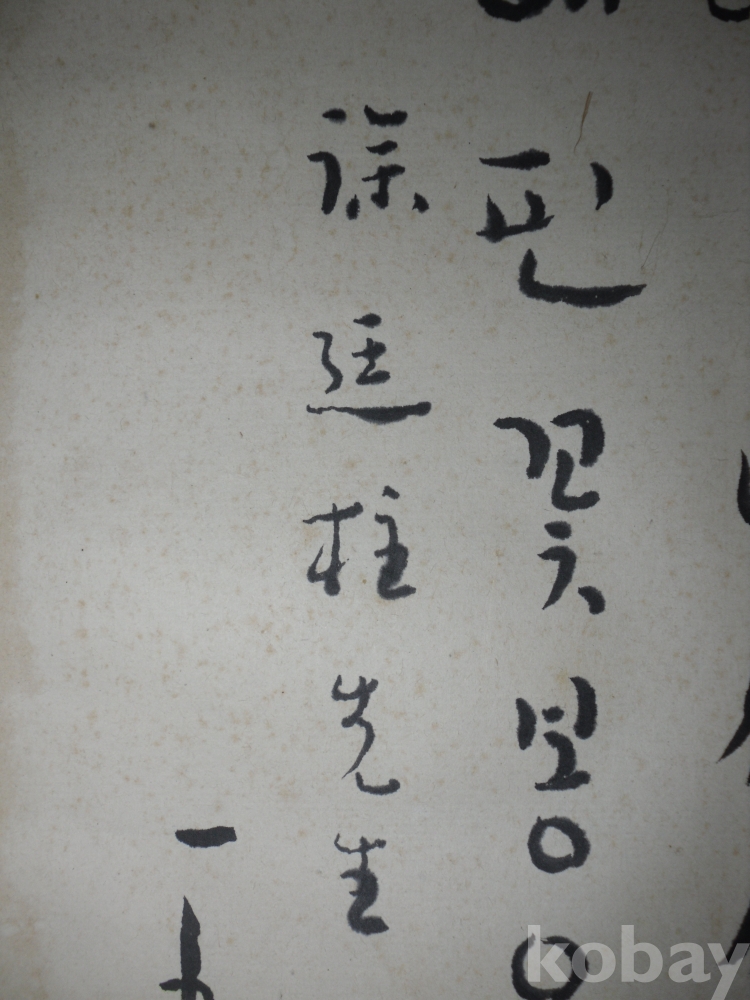 핀 꽃봉
徐廷柱先生
一
kobay